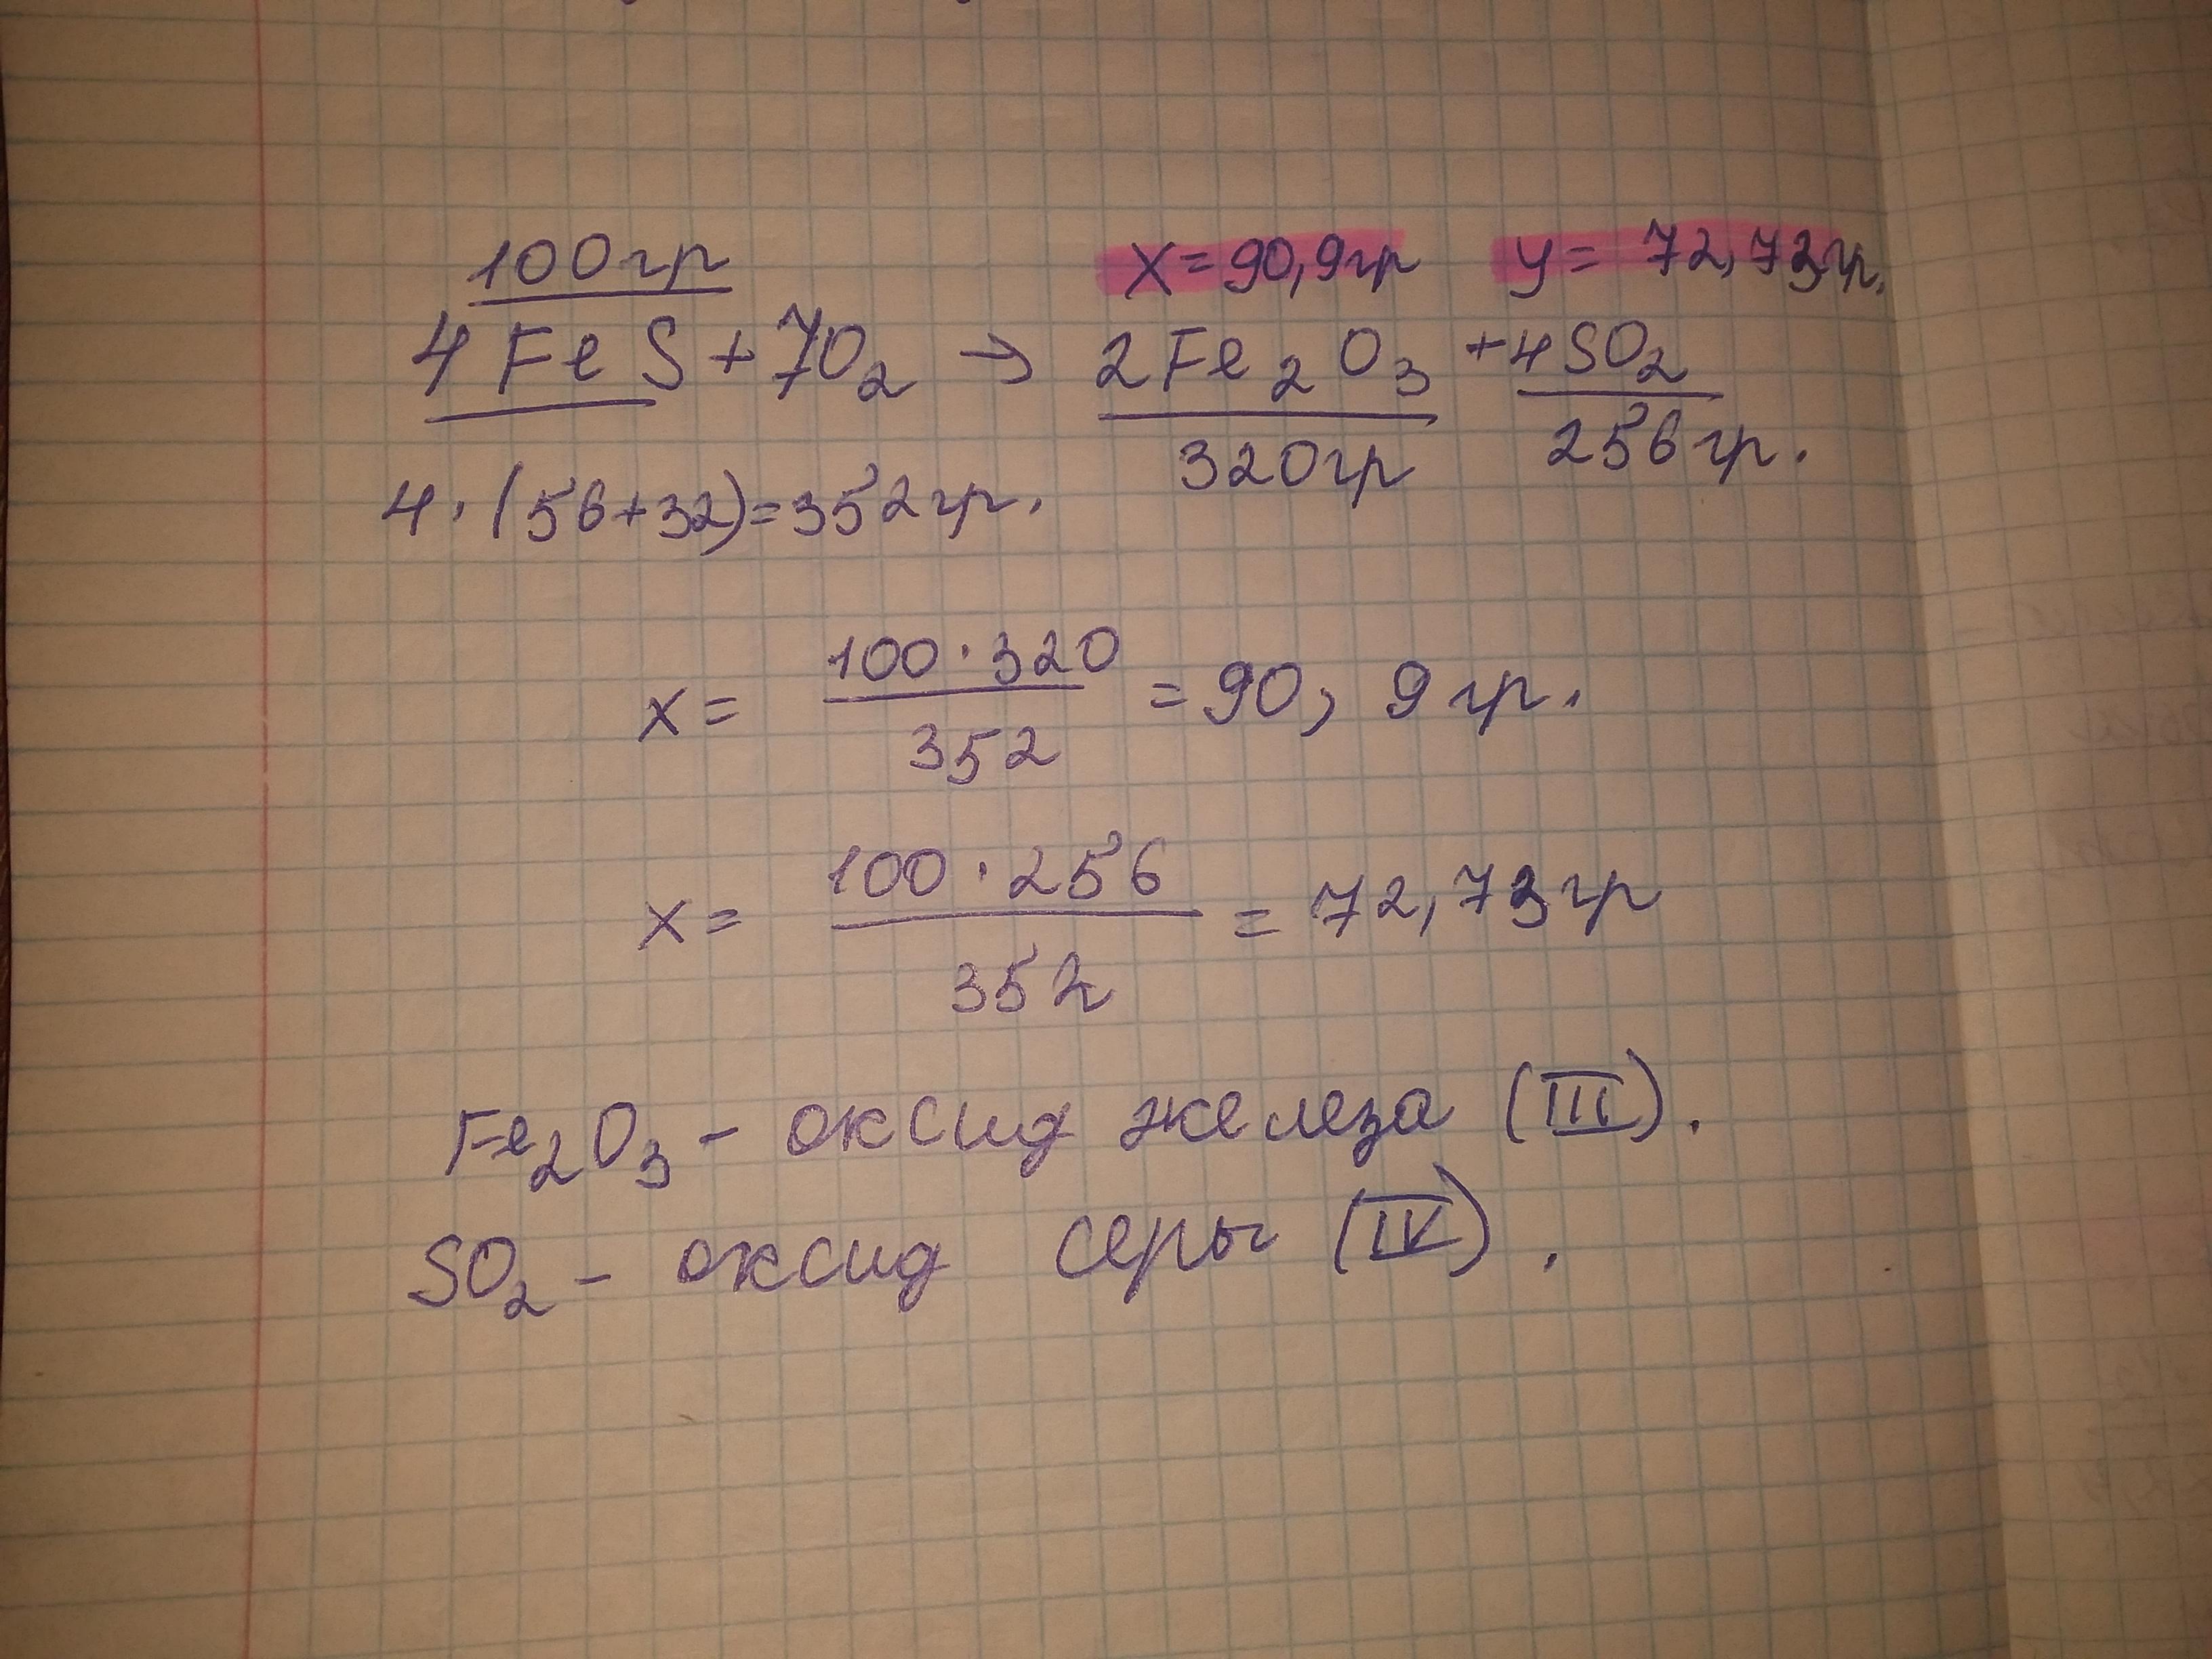 100гр x=90,9гр y=72,73гр.
4FeS+7O₂ → 2Fe₂O₃ +4SO₂
4·(56+32)=352гр. 320гр 256гр.
x= 100·320 / 352 =90,9гр.
x= 100·256 / 352 =72,73гр
Fe₂O₃- оксид железа (III).
SO₂- оксид серы (IV).